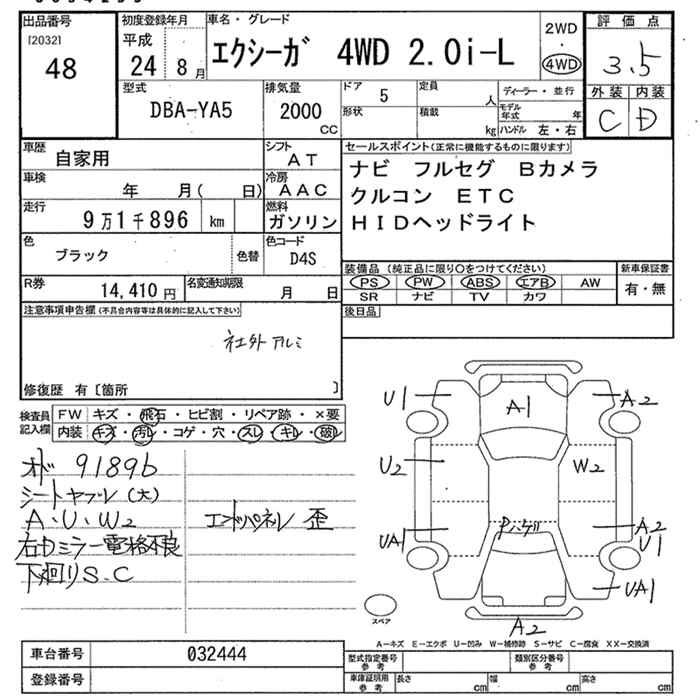 出品番号
[2032]
48
初度登録年月
平成
24 8月
車名・グレード
エクシーガ 4WD 2.0i-L
2WD
・
4WD
評価点
3.5
外装 内装
C D
型式
DBA-YA5
排気量
2000
CC
ドア 5
定員 人
形状
積載 kg
ディーラー・並行
モデル年式 年
ハンドル 左・右
車歴
自家用
シフト
AT
車検
年 月( 日)
冷房
AAC
走行
9万1千896 km
燃料
ガソリン
色
ブラック
色替
色コード
D4S
R券
14,410円
名変通知期限
月 日
セールスポイント(正常に機能するものに限ります)
ナビ フルセグ Bカメラ
クルコン ETC
HIDヘッドライト
装備品 (純正品に限り○をつけてください)
PS PW ABS エアB AW
SR ナビ TV カワ
新車保証書
有・無
後日品
注意事項申告欄 (不具合内容等は具体的に記入して下さい)
社外アルミ
修復歴 有 [箇所 ]
検査員記入欄
FW キズ・飛石・ヒビ割・リペア跡・×要
内装 キズ・汚レ・コゲ・穴・スレ・キレ・破レ
オド 91896
シートヤブレ(大)
A・U・W2
右ドミラー電格不良
下廻りS.C
エンドパネル 歪
U1
A1
A2
U2
W2
UA1
A2
U1
UA1
A2
スペア
A-キズ E-エクボ U-凹み W-補修跡 S-サビ C-腐食 XX-交換済
車台番号 032444
登録番号
型式指定番号 参考
類別区分番号 参考
車庫証明用 参考
長さ cm 幅 cm 高さ cm